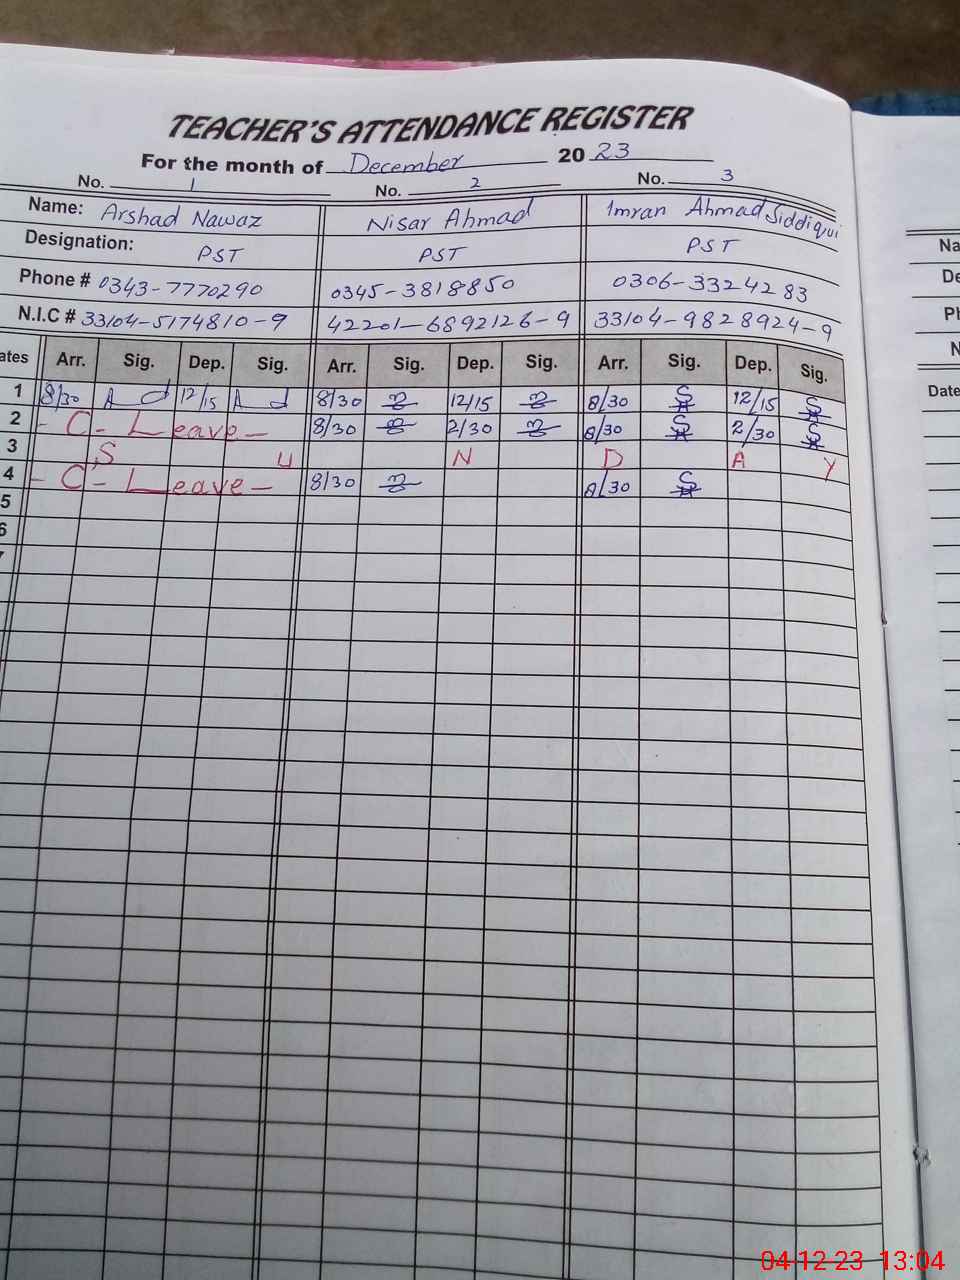 TEACHER'S ATTENDANCE REGISTER
For the month of December 2023
No. 1 No. 2 No. 3
Name: Arshad Nawaz Nisar Ahmad Imran Ahmad Siddiqui
Designation: PST PST PST
Phone # 0343-7770290 0345-3818850 0306-3324283
N.I.C # 33104-5174810-9 42201-6892126-9 33104-9828924-9
ates Arr. Sig. Dep. Sig. Arr. Sig. Dep. Sig. Arr. Sig. Dep. Sig.
1 8/30 12/15 8/30 12/15 8/30 12/15
2 - C - Leave - 8/30 2/30 8/30 2/30
3 S U N D A Y
4 - C - Leave - 8/30 8/30
5
6
Na
De
Ph
N
Date
04-12-23 13:04